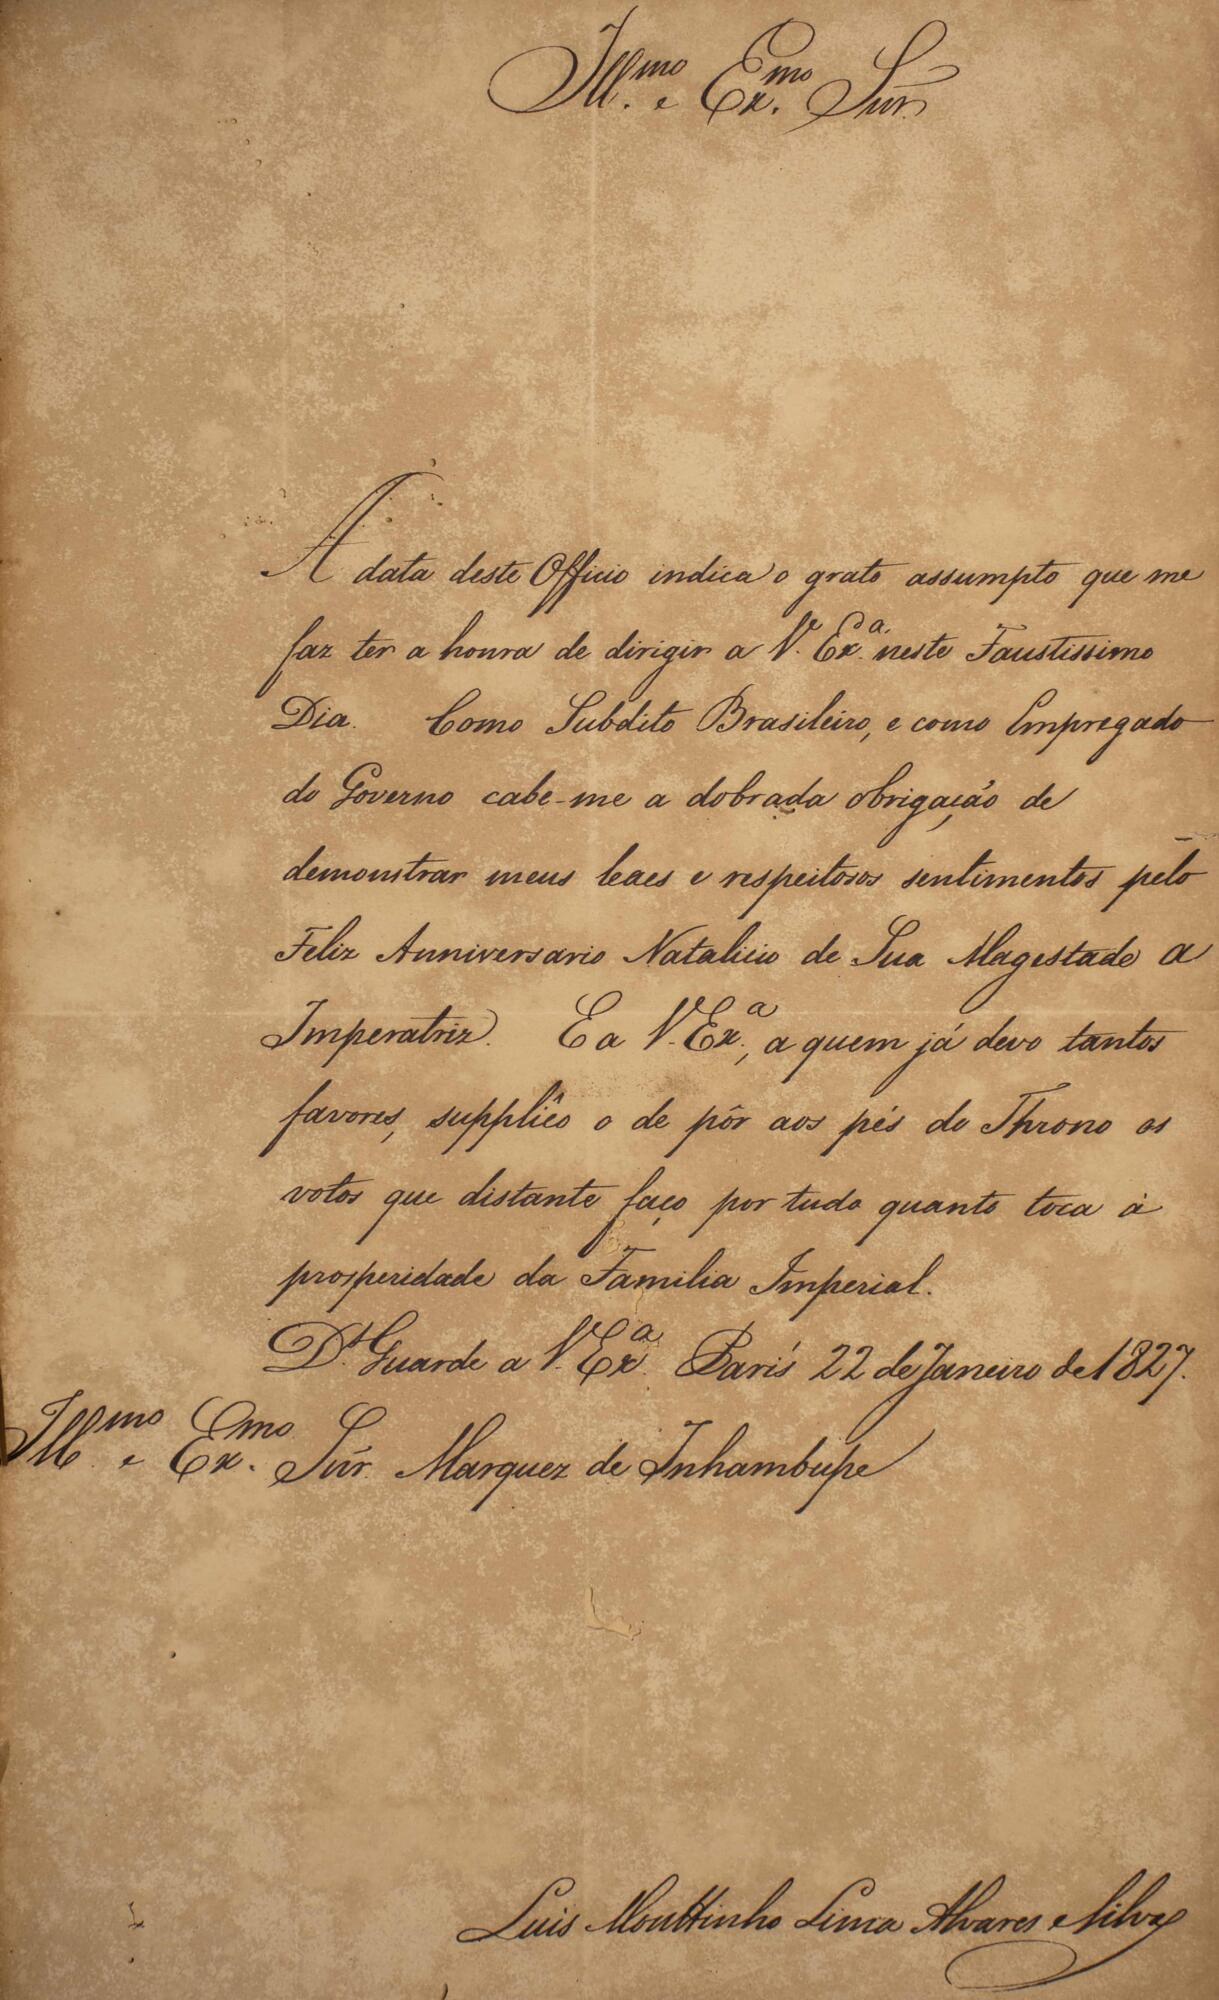 Ill.mo e Ex.mo Sñr.
A data deste Officio indica o grato assumpto que me
faz ter a honra de dirigir a V. Ex.a neste Faustissimo
Dia. Como Subdito Brasileiro, e como Empregado
do Governo cabe-me a dobrada obrigação de
demonstrar meus leaes e respeitosos sentimentos pelo
Feliz Anniversario Natalicio de Sua Magestade a
Imperatriz. E a V. Ex.a, a quem já devo tantos
favores, supplico o de pôr aos pés do Throno os
votos que distante faço por tudo quanto toca á
prosperidade da Familia Imperial.
D.s Guarde a V. Ex.a Paris 22 de Janeiro de 1827.
Ill.mo e Ex.mo Sñr. Marquez de Inhambupe
Luis Mouttinho Lima Alvares e Silva